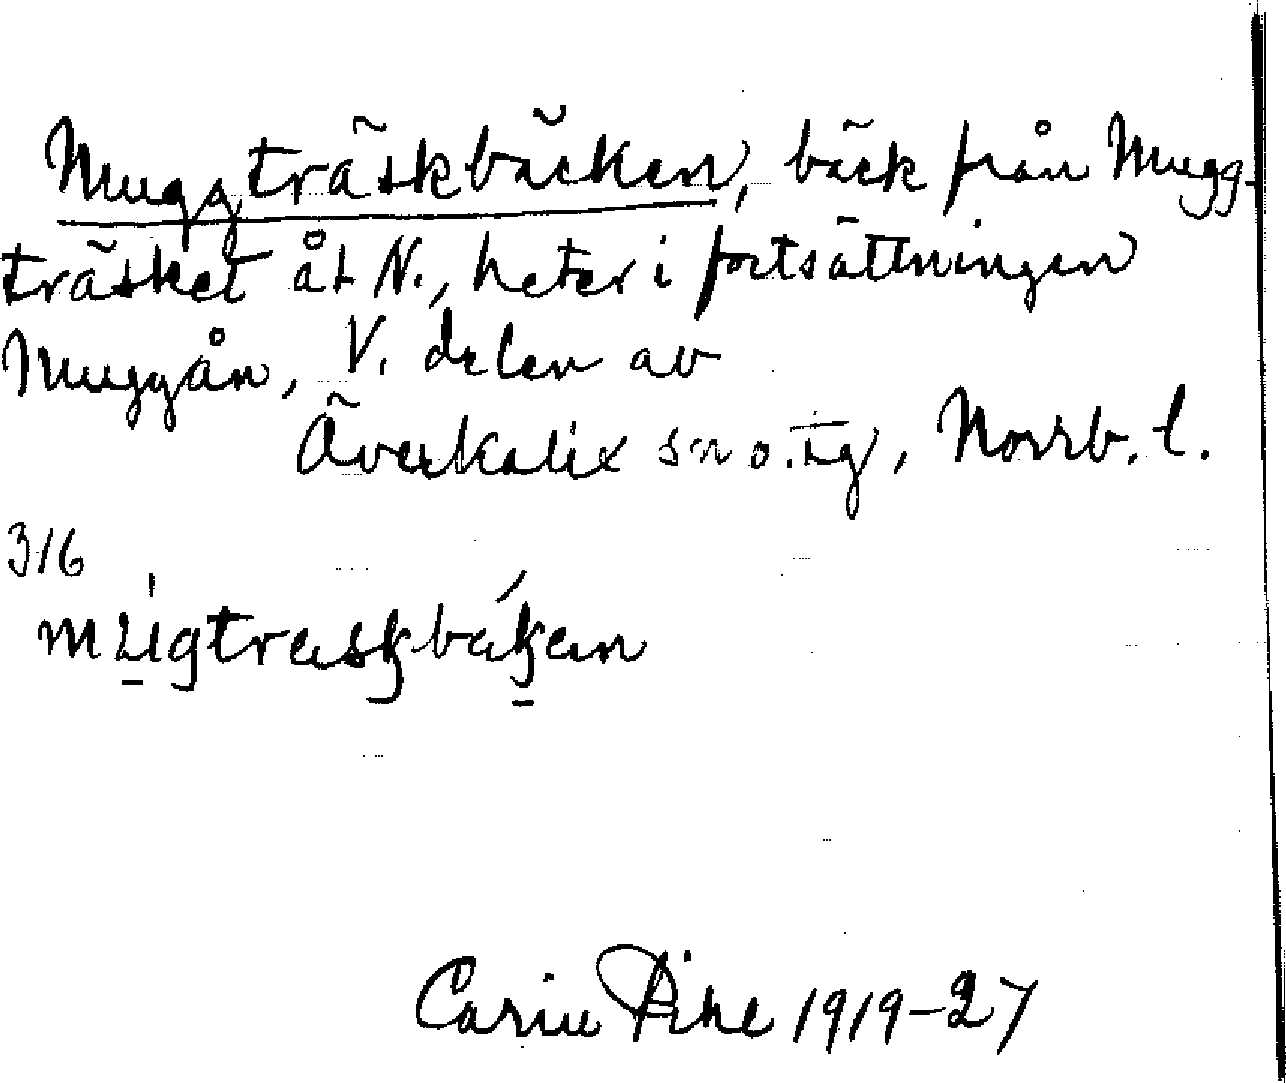 Muggträskbäcken, bäck från Mugg-
träsket åt N., heter i fortsättningen
Muggån, V. delen av
Överkalix sn o. tg, Norrb. l.
316
Carin Pihl 1919-27